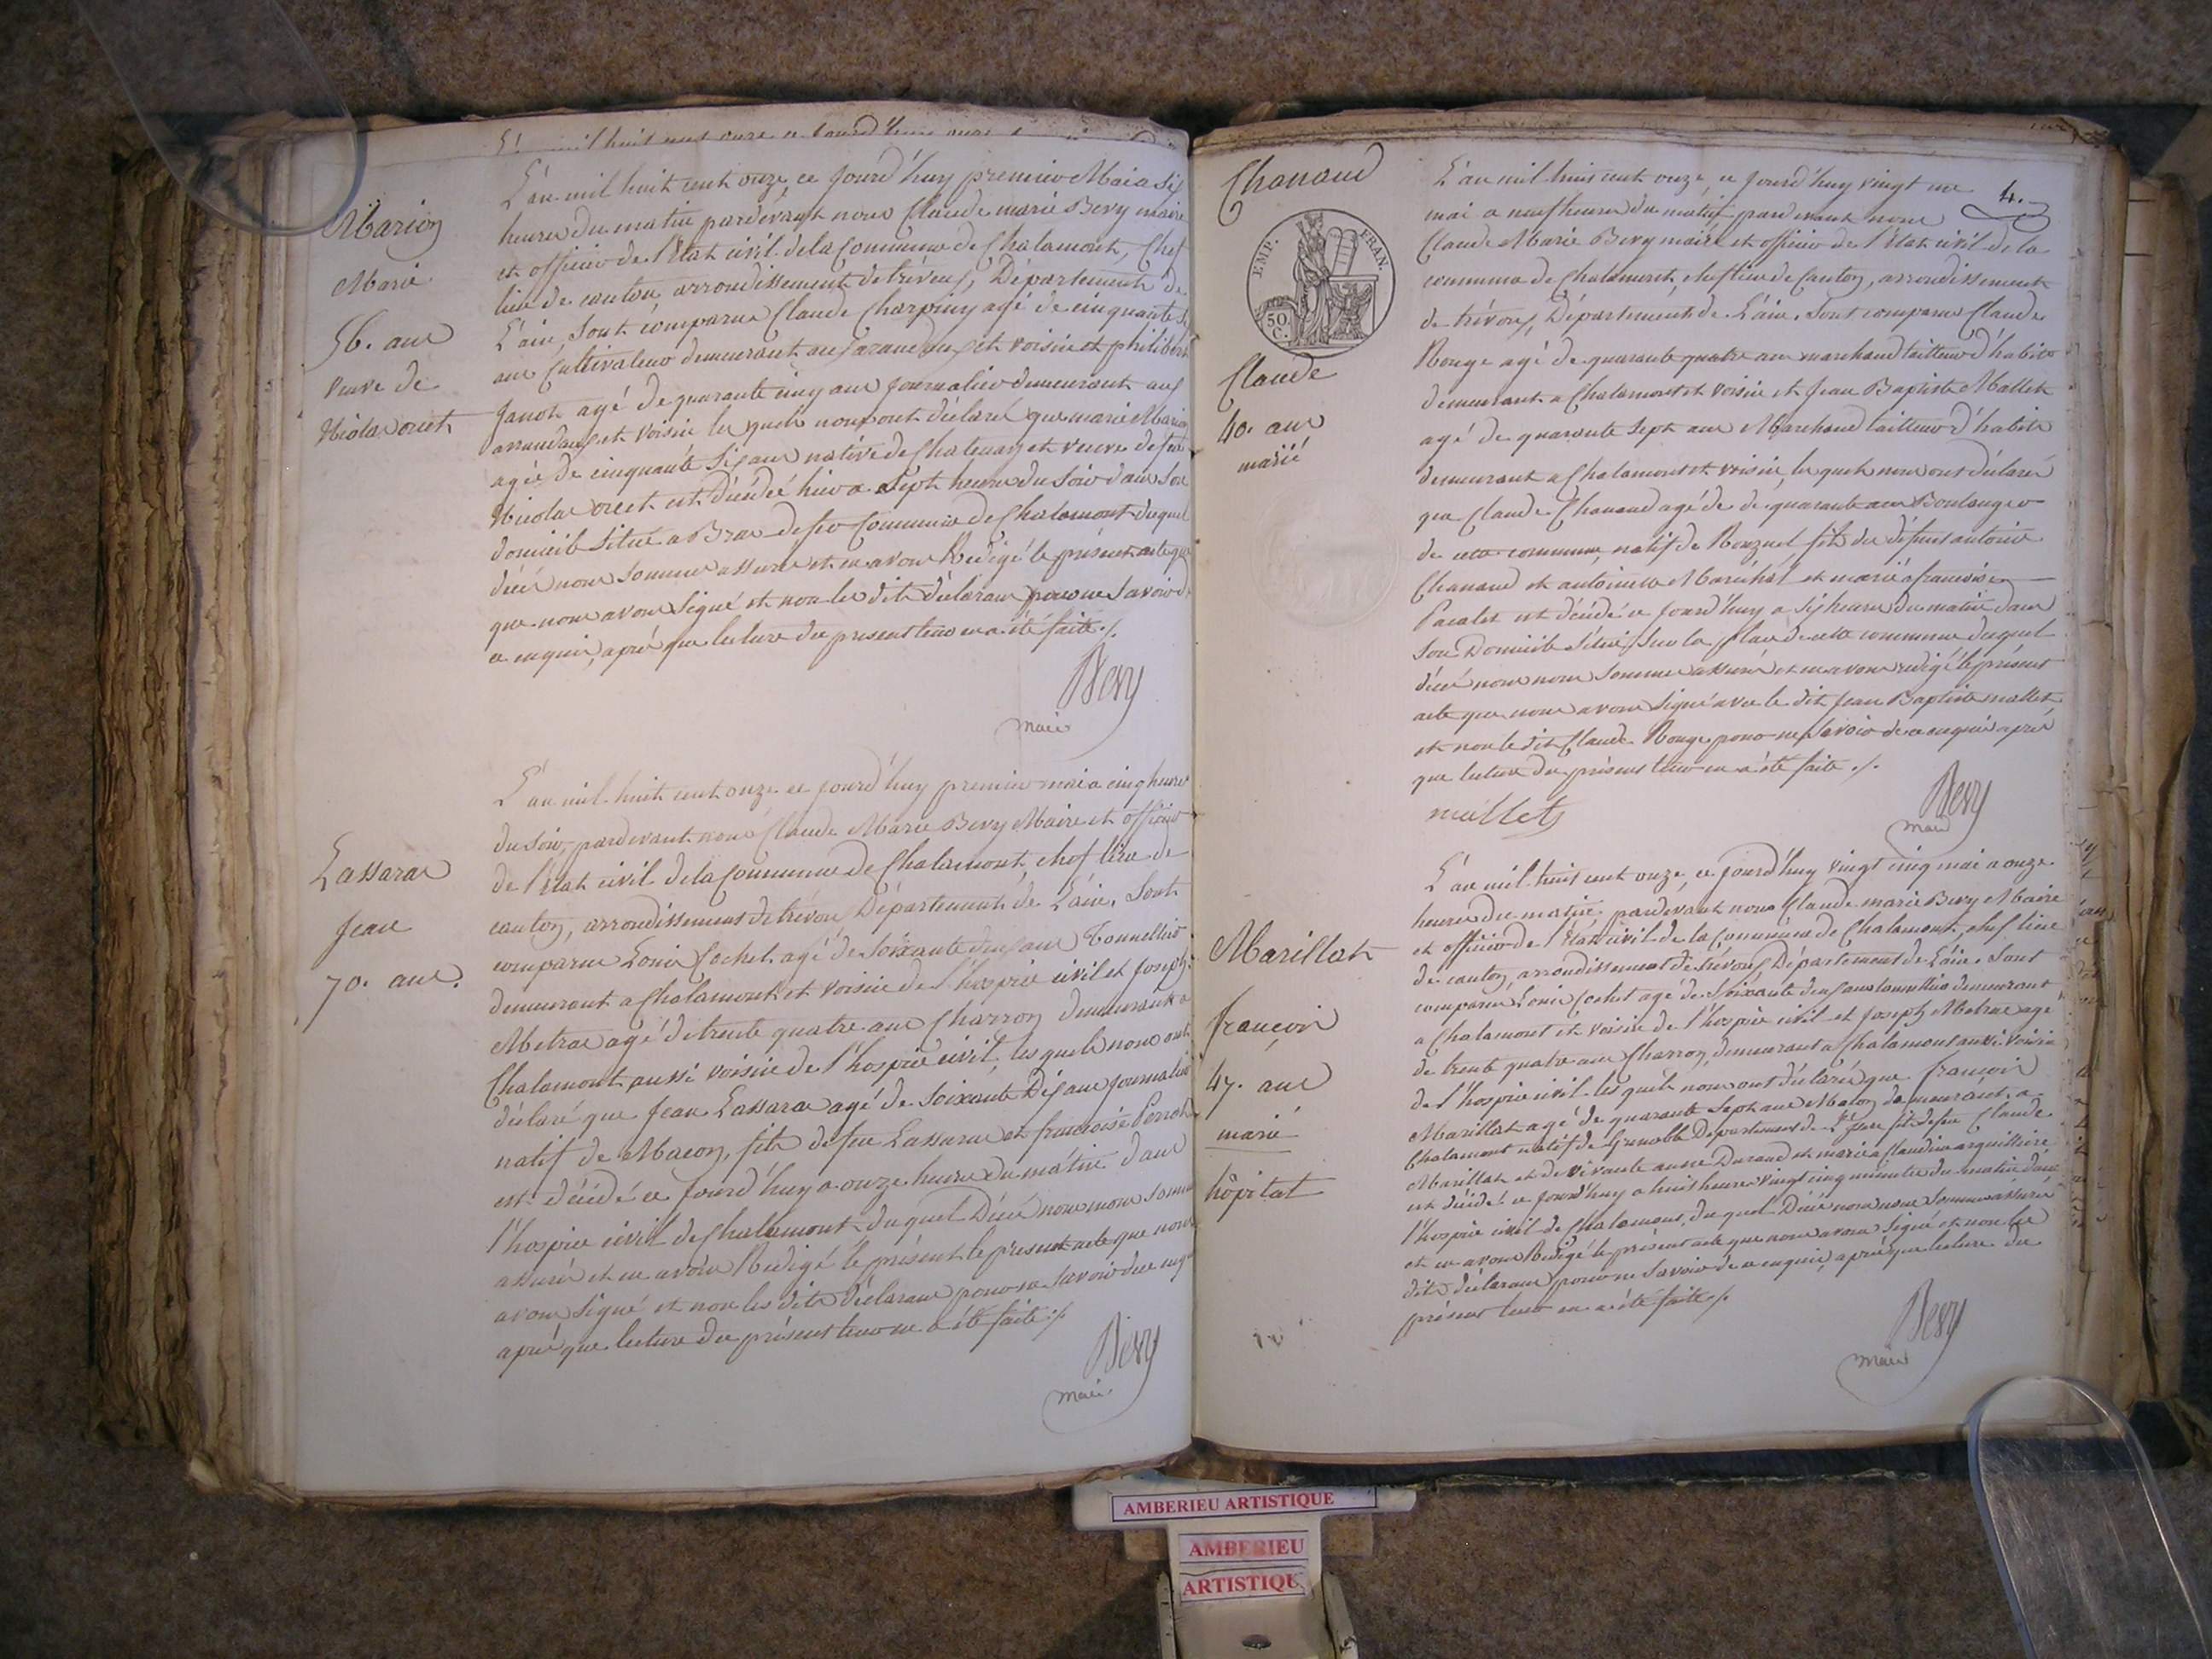 Marion
Marie
56. ans
veuve de
Nicolas oriet
L'an mil huit cent onze, ce jourd'huy premier Mai a six
heures du matin pardevant nous Claude marie Bevy maire
et officier de l'état civil de la Commune de Chalamont, Chef
lieu de canton, arrondissement de trévoux, Département de
L'ain, sont comparus Claude Charpiny agé de cinquante
ans Cultivateur demeurant et voisin et philibert
Janot agé de quarante cinq ans journalier demeurant aux
et voisin les quels nous ont déclaré que marie Marion
agée de cinquante six ans native de Chatenay et veuve de feu
Nicolas oriet est décédée hier a sept heures du soir dans son
domicile situé a Commune de Chalamont duquel
décé nous sommes assurés et en avons Redigé le présent acte
que nous avons signé et non les dits déclarans pour ne savoir
ce enquis, aprés que lecture du present leur en a été faite ./.
Bevy
maire
Lassarat
Jean
70. ans.
L'an mil huit cent onze ce jourd'huy premier mai a cinq heures
du soir, pardevant nous Claude Marie Bevy Maire et officier
de l'état civil de la Commune de Chalamont, chef lieu de
canton, arrondissement de trévoux, Département de L'ain. Sont
comparus Louis Cochet agé de soixante deux ans Tonnellier
demeurant a Chalamont et voisin de l'hospice civil et Joseph
Metras agé de trente quatre ans Charron demeurant a
Chalamont aussi voisin de l'hospice civil, les quels nous ont
déclaré que Jean Lassara agé de soixante Dix ans journalier
natif de Macon, fils de feu Lassarat et françoise
est décédé ce jourd'huy a onze heures du matin dans
l'hospice civil de Chalamont, du quel Décé nous nous sommes
assurés et en avons Redigé le présent le present acte que nous
avons signé et non les dits déclarans pour ne savoir de ce enquis
aprés que lecture du présent leur en a été faite ./.
Bevy
maire
4.
Chanaud
EMP. FRAN.
50 C.
Claude
40. ans
marié
L'an mil huit cent onze, ce jourd'huy vingt
mai a neuf heures du matin pardevant nous
Claude Marie Bevy maire et officier de l'état civil de la
commune de Chalamont, chef lieu de Canton, arrondissement
de trévoux, Département de L'ain. Sont comparus Claude
Rouge agé de quarante quatre ans marchand tailleur d'habits
demeurant a Chalamont et voisin et Jean Baptiste Mallet
agé de quarante sept ans Marchand tailleur d'habits
demeurant a Chalamont et voisin, les quels nous ont déclaré
que Claude Chanaud agé de de quarante ans Boulanger
de cette commune, natif de Ronzuel fils des défunts antoine
Chanaud et antoinette Maréchal et marié a françoise
Pacalet est décédé ce jourd'huy a six heures du matin dans
son Domicile situé sur la place de cette commune duquel
décé nous nous sommes assurés et en avons redigé le présent
acte que nous avons signé avec le dit Jean Baptiste mallet
et non le dit Claude Rouge pour ne savoir de ce enquis aprés
que lecture du présent leur en a été faite ./.
mallet
Bevy
maire
Marillat
françois
47. ans
marié
hôpital
L'an mil huit cent onze, ce jourd'huy vingt cinq mai a onze
heures du matin pardevant nous Claude marie Bevy Maire
et officier de l'état civil de la Commune de Chalamont, chef lieu
de canton, arrondissement de trévoux, Département de L'ain. Sont
comparus Louis Cochet agé de soixante deux ans tonnellier demeurant
a Chalamont et voisin de l'hospice civil et Joseph Metras agé
de trente quatre ans Charron, demeurant a Chalamont aussi voisin
de l'hospice civil les quels nous ont déclaré que françois
Marillat agé de quarante sept ans Maçon demeurant a
Chalamont natif de Grenoble Département de L'isere fils de feu Claude
Marillat et de vivante anne Durand et marié a Claudine arquilliere
est décédé ce jourd'huy a huit heures vingt cinq minutes du matin dans
l'hospice civil de Chalamont, du quel Décé nous nous sommes assurés
et en avons Redigé le présent acte que nous avons signé et non les
dits déclarans pour ne savoir de ce enquis, aprés que lecture du
présent leur en a été faite ./.
Bevy
maire
AMBERIEU ARTISTIQUE
AMBERIEU
ARTISTIQUE